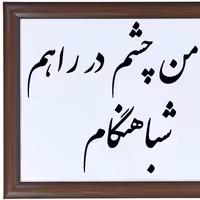 من چشم در راهم
شباهنگام